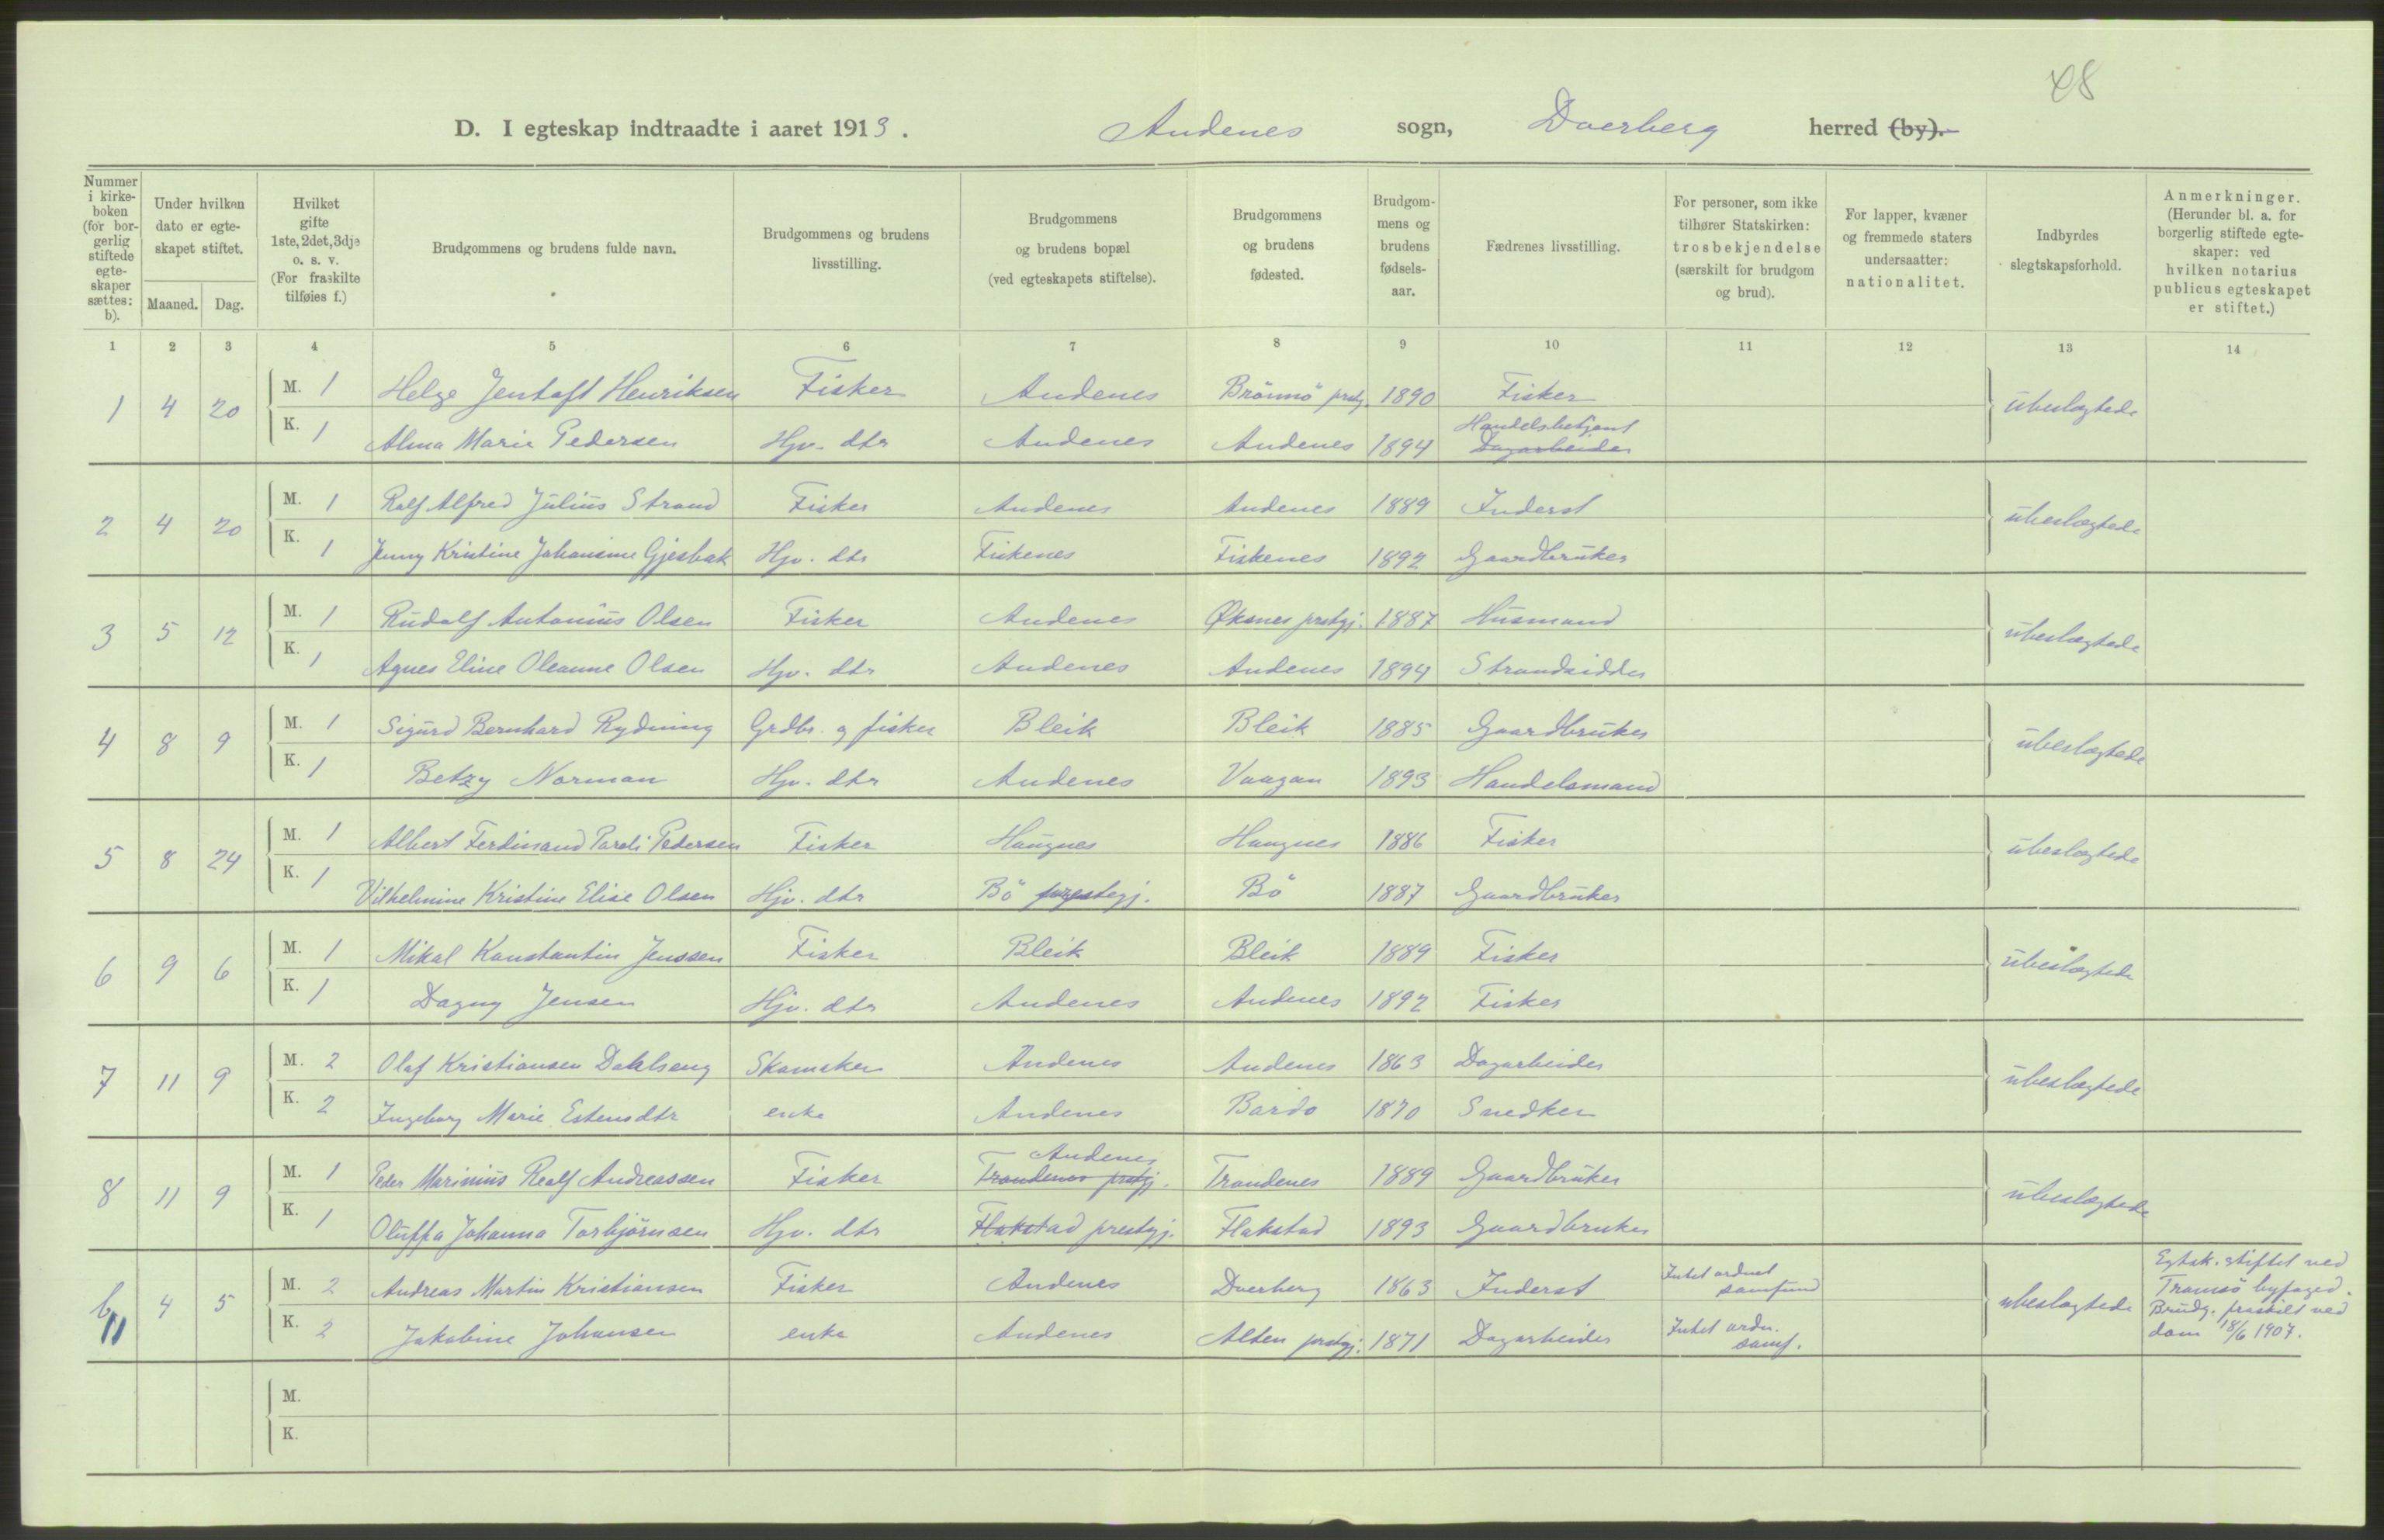 48
D. I egteskap indtraadte i aaret 1913. Andenes sogn, Dverberg herred (by).
Nummer i kirkeboken (for borgerlig stiftede egteskaper sættes: b).
Under hvilken dato er egteskapet stiftet.
Maaned. Dag.
Hvilket gifte 1ste, 2det, 3dje o. s. v. (For fraskilte tilføies f.)
Brudgommens og brudens fulde navn.
Brudgommens og brudens livsstilling.
Brudgommens og brudens bopæl (ved egteskapets stiftelse).
Brudgommens og brudens fødested.
Brudgommens og brudens fødselsaar.
Fædrenes livsstilling.
For personer, som ikke tilhører Statskirken: trosbekjendelse (særskilt for brudgom og brud).
For lapper, kvæner og fremmede staters undersaatter: nationalitet.
Indbyrdes slegtskapsforhold.
Anmerkninger. (Herunder bl. a. for borgerlig stiftede egteskaper: ved hvilken notarius publicus egteskapet er stiftet.)
1 2 3 4 5 6 7 8 9 10 11 12 13 14
1 4 20 M. 1 Helge Jentoft Henriksen Fisker Andenes Brönnö prstgj. 1890 Fisker ubeslægtede
K. 1 Alma Marie Pedersen Hjv. dtr Andenes Andenes 1894 Handelsbetjent Dagarbeider
2 4 20 M. 1 Ralf Alfred Julius Strand Fisker Andenes Andenes 1889 Inderst ubeslægtede
K. 1 Jenny Kristine Johansine Gjesbak Hjv. dtr Fiskenes Fiskenes 1892 Gaardbruker
3 5 12 M. 1 Rudolf Antonius Olsen Fisker Andenes Øksnes prstgj. 1887 Husmand ubeslægtede
K. 1 Agnes Eline Oleanne Olsen Hjv. dtr Andenes Andenes 1894 Strandsidder
4 8 9 M. 1 Sigurd Bernhard Rydning Grdbr. og fisker Bleik Bleik 1885 Gaardbruker ubeslægtede
K. 1 Betzy Norman Hjv. dtr Andenes Vaagan 1893 Handelsmand
5 8 24 M. 1 Albert Ferdinand Pareli Pedersen Fisker Haugnes Haugnes 1886 Fisker ubeslægtede
K. 1 Vilhelmine Kristine Elise Olsen Hjv. dtr Bö prestegj. Bö 1887 Gaardbruker
6 9 6 M. 1 Mikal Konstantin Jenssen Fisker Bleik Bleik 1889 Fisker ubeslægtede
K. 1 Dagny Jensen Hjv. dtr Andenes Andenes 1892 Fisker
7 11 9 M. 2 Olaf Kristiansen Dahlseng Skomaker Andenes Andenes 1863 Dagarbeider ubeslægtede
K. 2 Ingeborg Marie Estensdtr enke Andenes Bardo 1870 Snedker
8 11 9 M. 1 Peder Marinius Realf Andreassen Fisker Andenes Trondenes prstgj. Trondenes 1889 Gaardbruker ubeslægtede
K. 1 Oluffa Johanna Torbjörnsen Hjv. dtr Flakstad prestgj. Flakstad 1893 Gaardbruker
b 4 5 M. 2 Andreas Martin Kristiansen Fisker Andenes Dverberg 1863 Inderst Intet ordnet samfund ubeslægtede Egtsk. stiftet ved Tromsö byfoged. Brudg. fraskilt ved dom 18/6 1907.
K. 2 Jakobine Johansen enke Andenes Alten prstgj. 1871 Dagarbeider Intet ordn. samf.
M.
K.